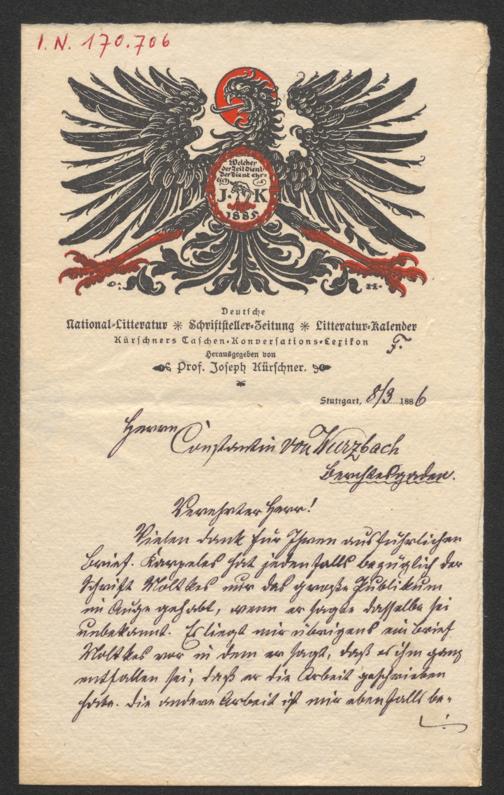 I. N. 170.706
Welcher
der Zeit dient
der dient ehr-
J. K
1885
Deutsche
National-Litteratur ✳ Schriftsteller-Zeitung ✳ Litteratur-Kalender
Kürschners Taschen-Konversations-Lexikon
F.
Herausgegeben von
Prof. Joseph Kürschner.
Stuttgart, 8/3 1886
Herrn
Constantin von Wurzbach
Berchtesgaden.
Verehrter Herr!
Vielen Dank für Ihren ausführlichen
Brief. Karpeles hat jedenfalls bezüglich der
Schrift Moltkes nur das große Publikum
im Auge gehabt, wenn er sagte dasselbe sei
unbekannt. Es liegt mir übrigens ein Brief
Moltkes vor in dem er sagt, daß es ihm ganz
entfallen sei, daß er die Arbeit geschrieben
habe. Die andere Arbeit ist mir ebenfalls be-